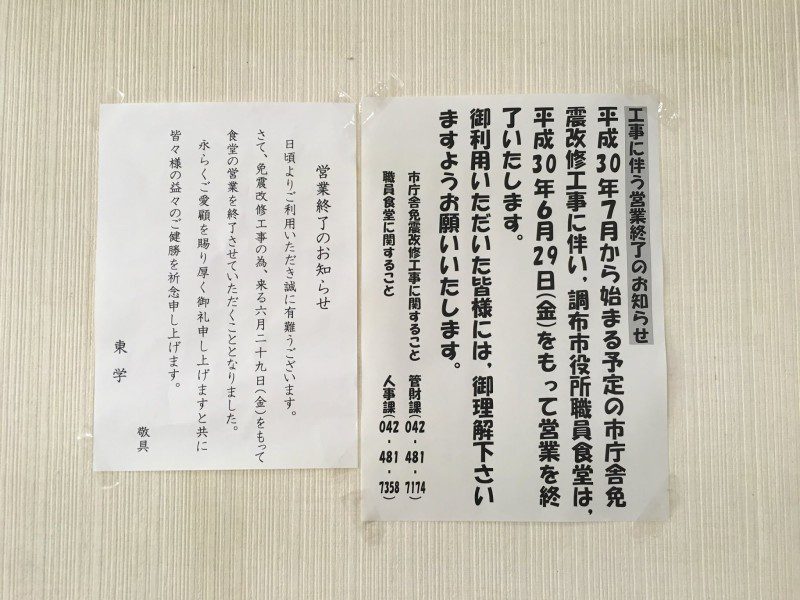 工事に伴う営業終了のお知らせ
平成30年7月から始まる予定の市庁舎免
震改修工事に伴い,調布市役所職員食堂は,
平成30年6月29日(金)をもって営業を終
了いたします。
御利用いただいた皆様には,御理解下さい
ますようお願いいたします。
市庁舎免震改修工事に関すること 管財課(042-481-7174)
職員食堂に関すること 人事課(042-481-7358)
営業終了のお知らせ
日頃よりご利用いただき誠に有難うございます。
さて、免震改修工事の為、来る六月二十九日(金)をもって
食堂の営業を終了させていただくこととなりました。
永らくご愛顧を賜り厚く御礼申し上げますと共に
皆々様の益々のご健勝を祈念申し上げます。
敬具
東学